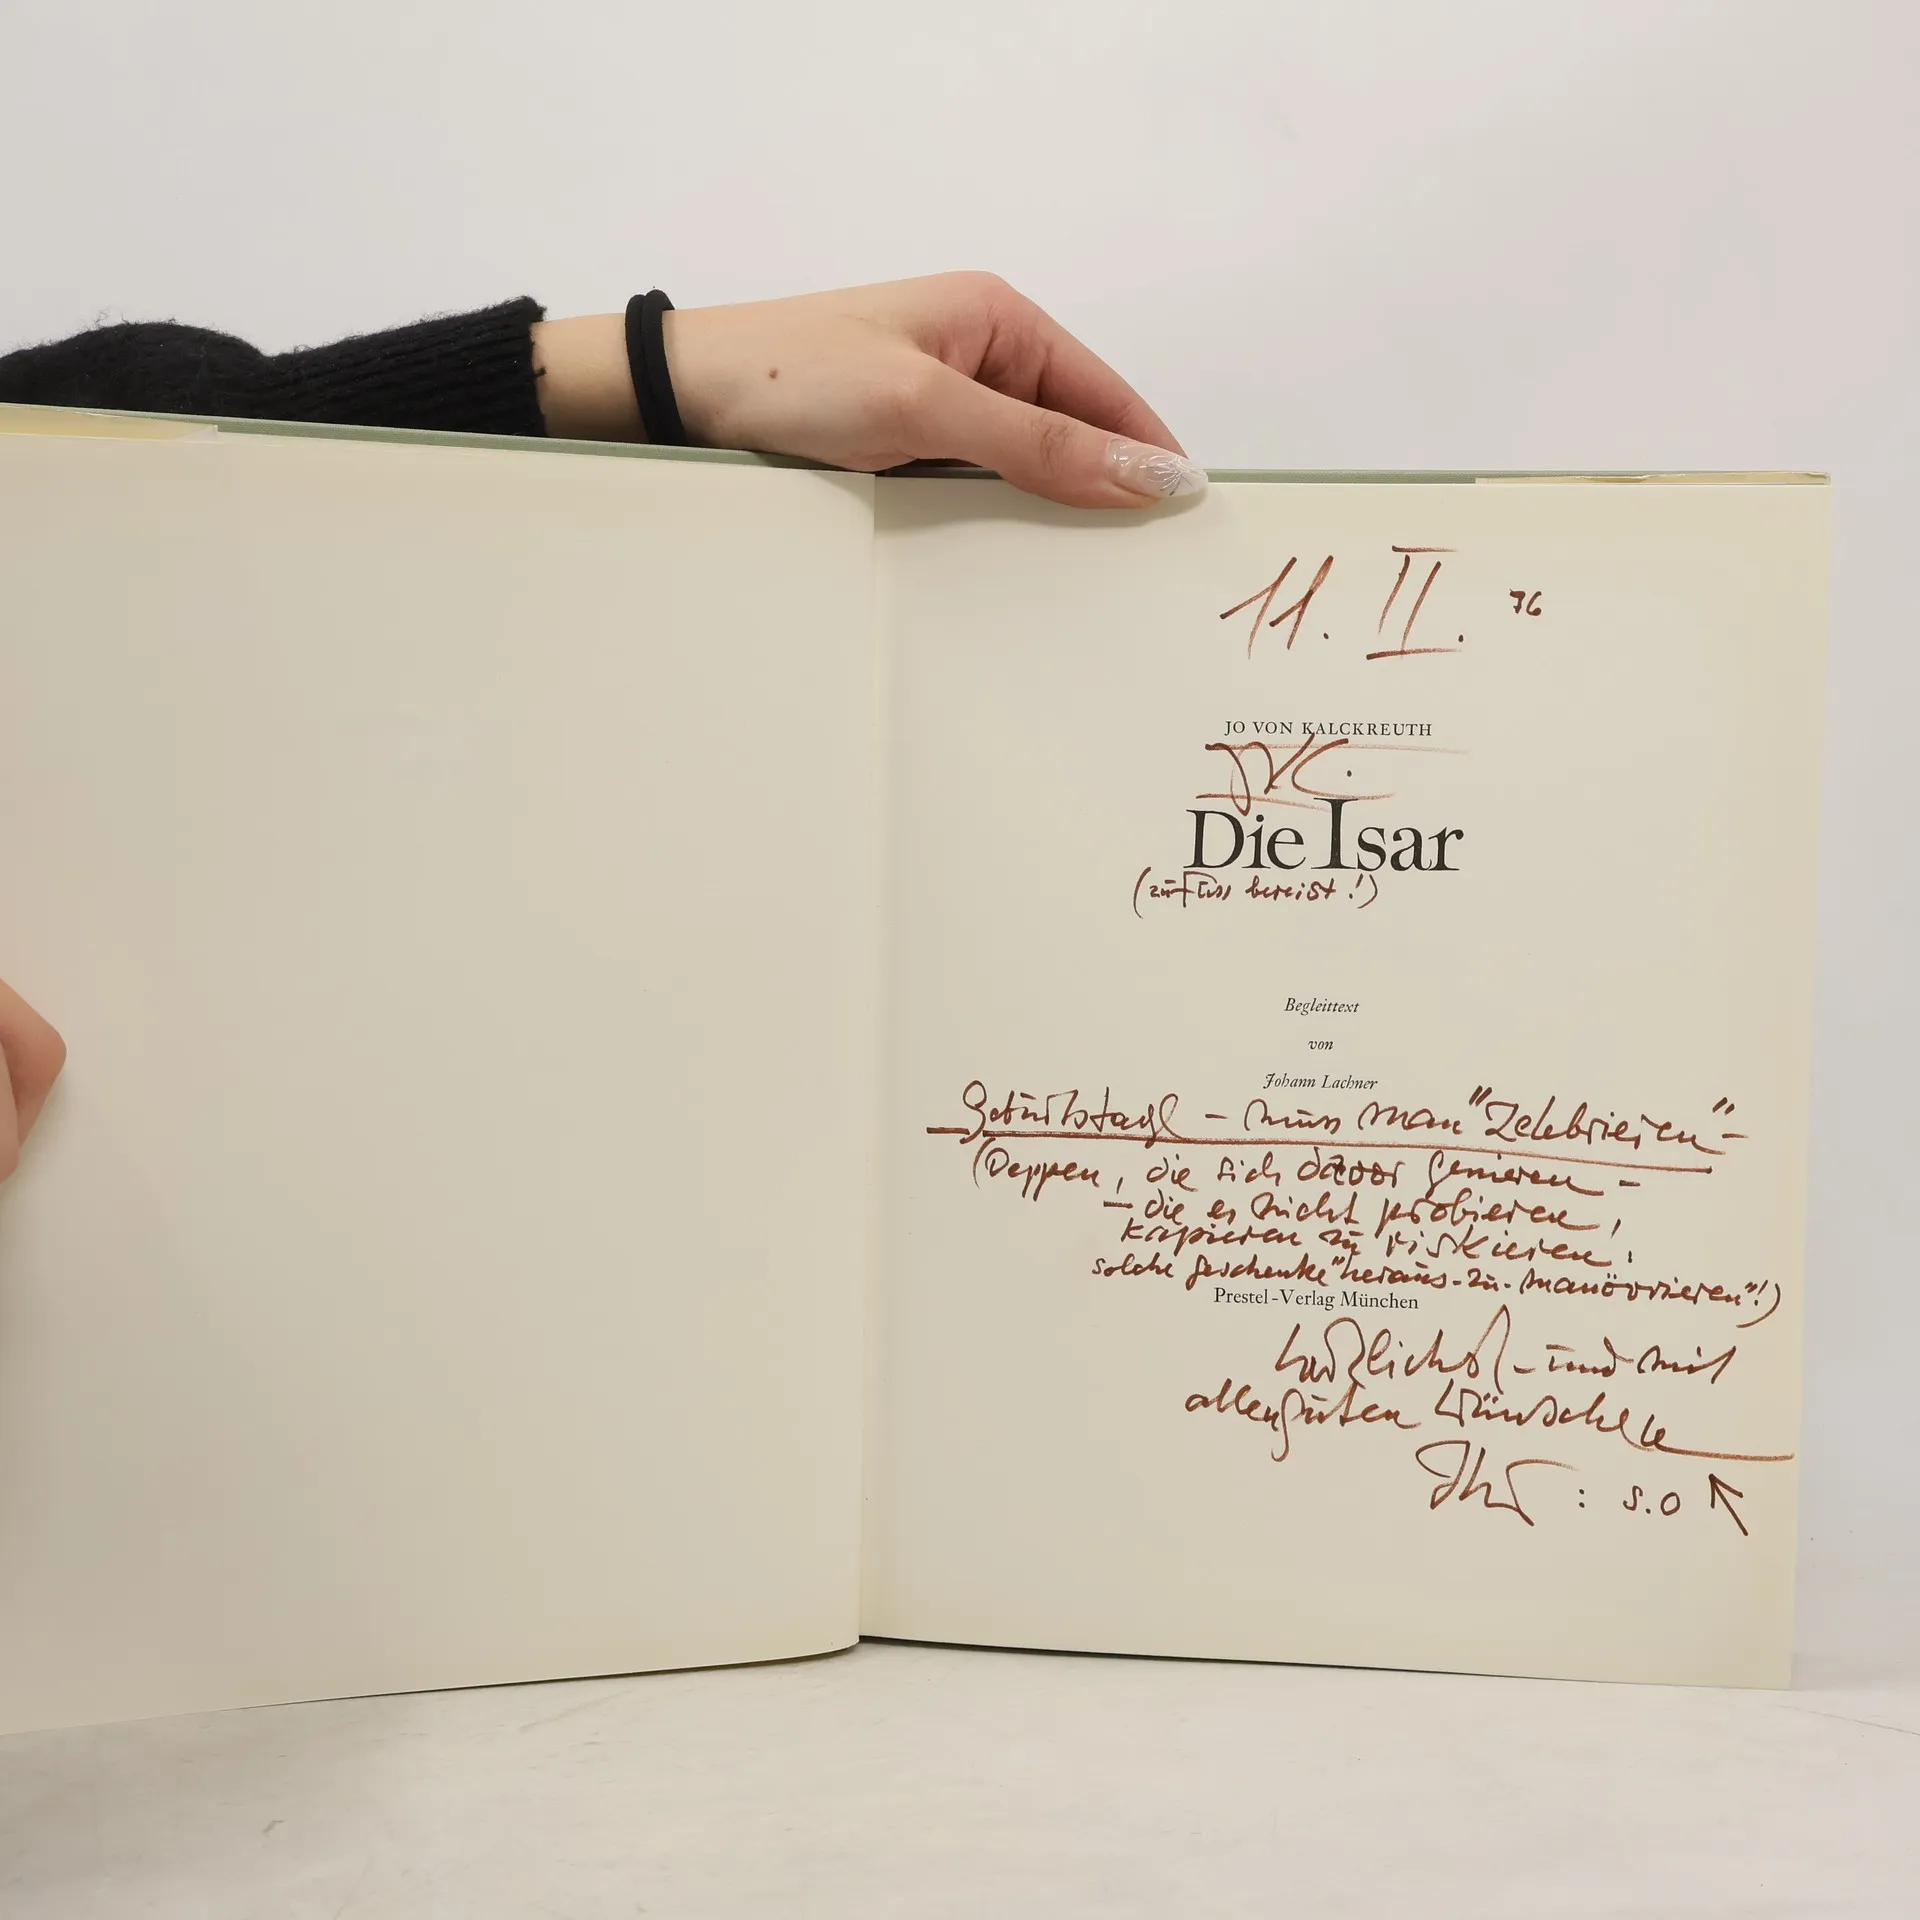 11. II. 76
JO VON KALCKREUTH
JK.
Die Isar
(zu Fuss bereist!)
Begleittext
von
Johann Lachner
Geburtstage - muss man "Zelebrieren" -
(Deppen, die sich davor genieren -
- die es nicht probieren,
kapieren zu riskieren:
solche Geschenke "heraus-zu-manövrieren"!)
Prestel-Verlag München
herzlichst - und mit
allen guten Wünschen
Ihr : s.o ↖